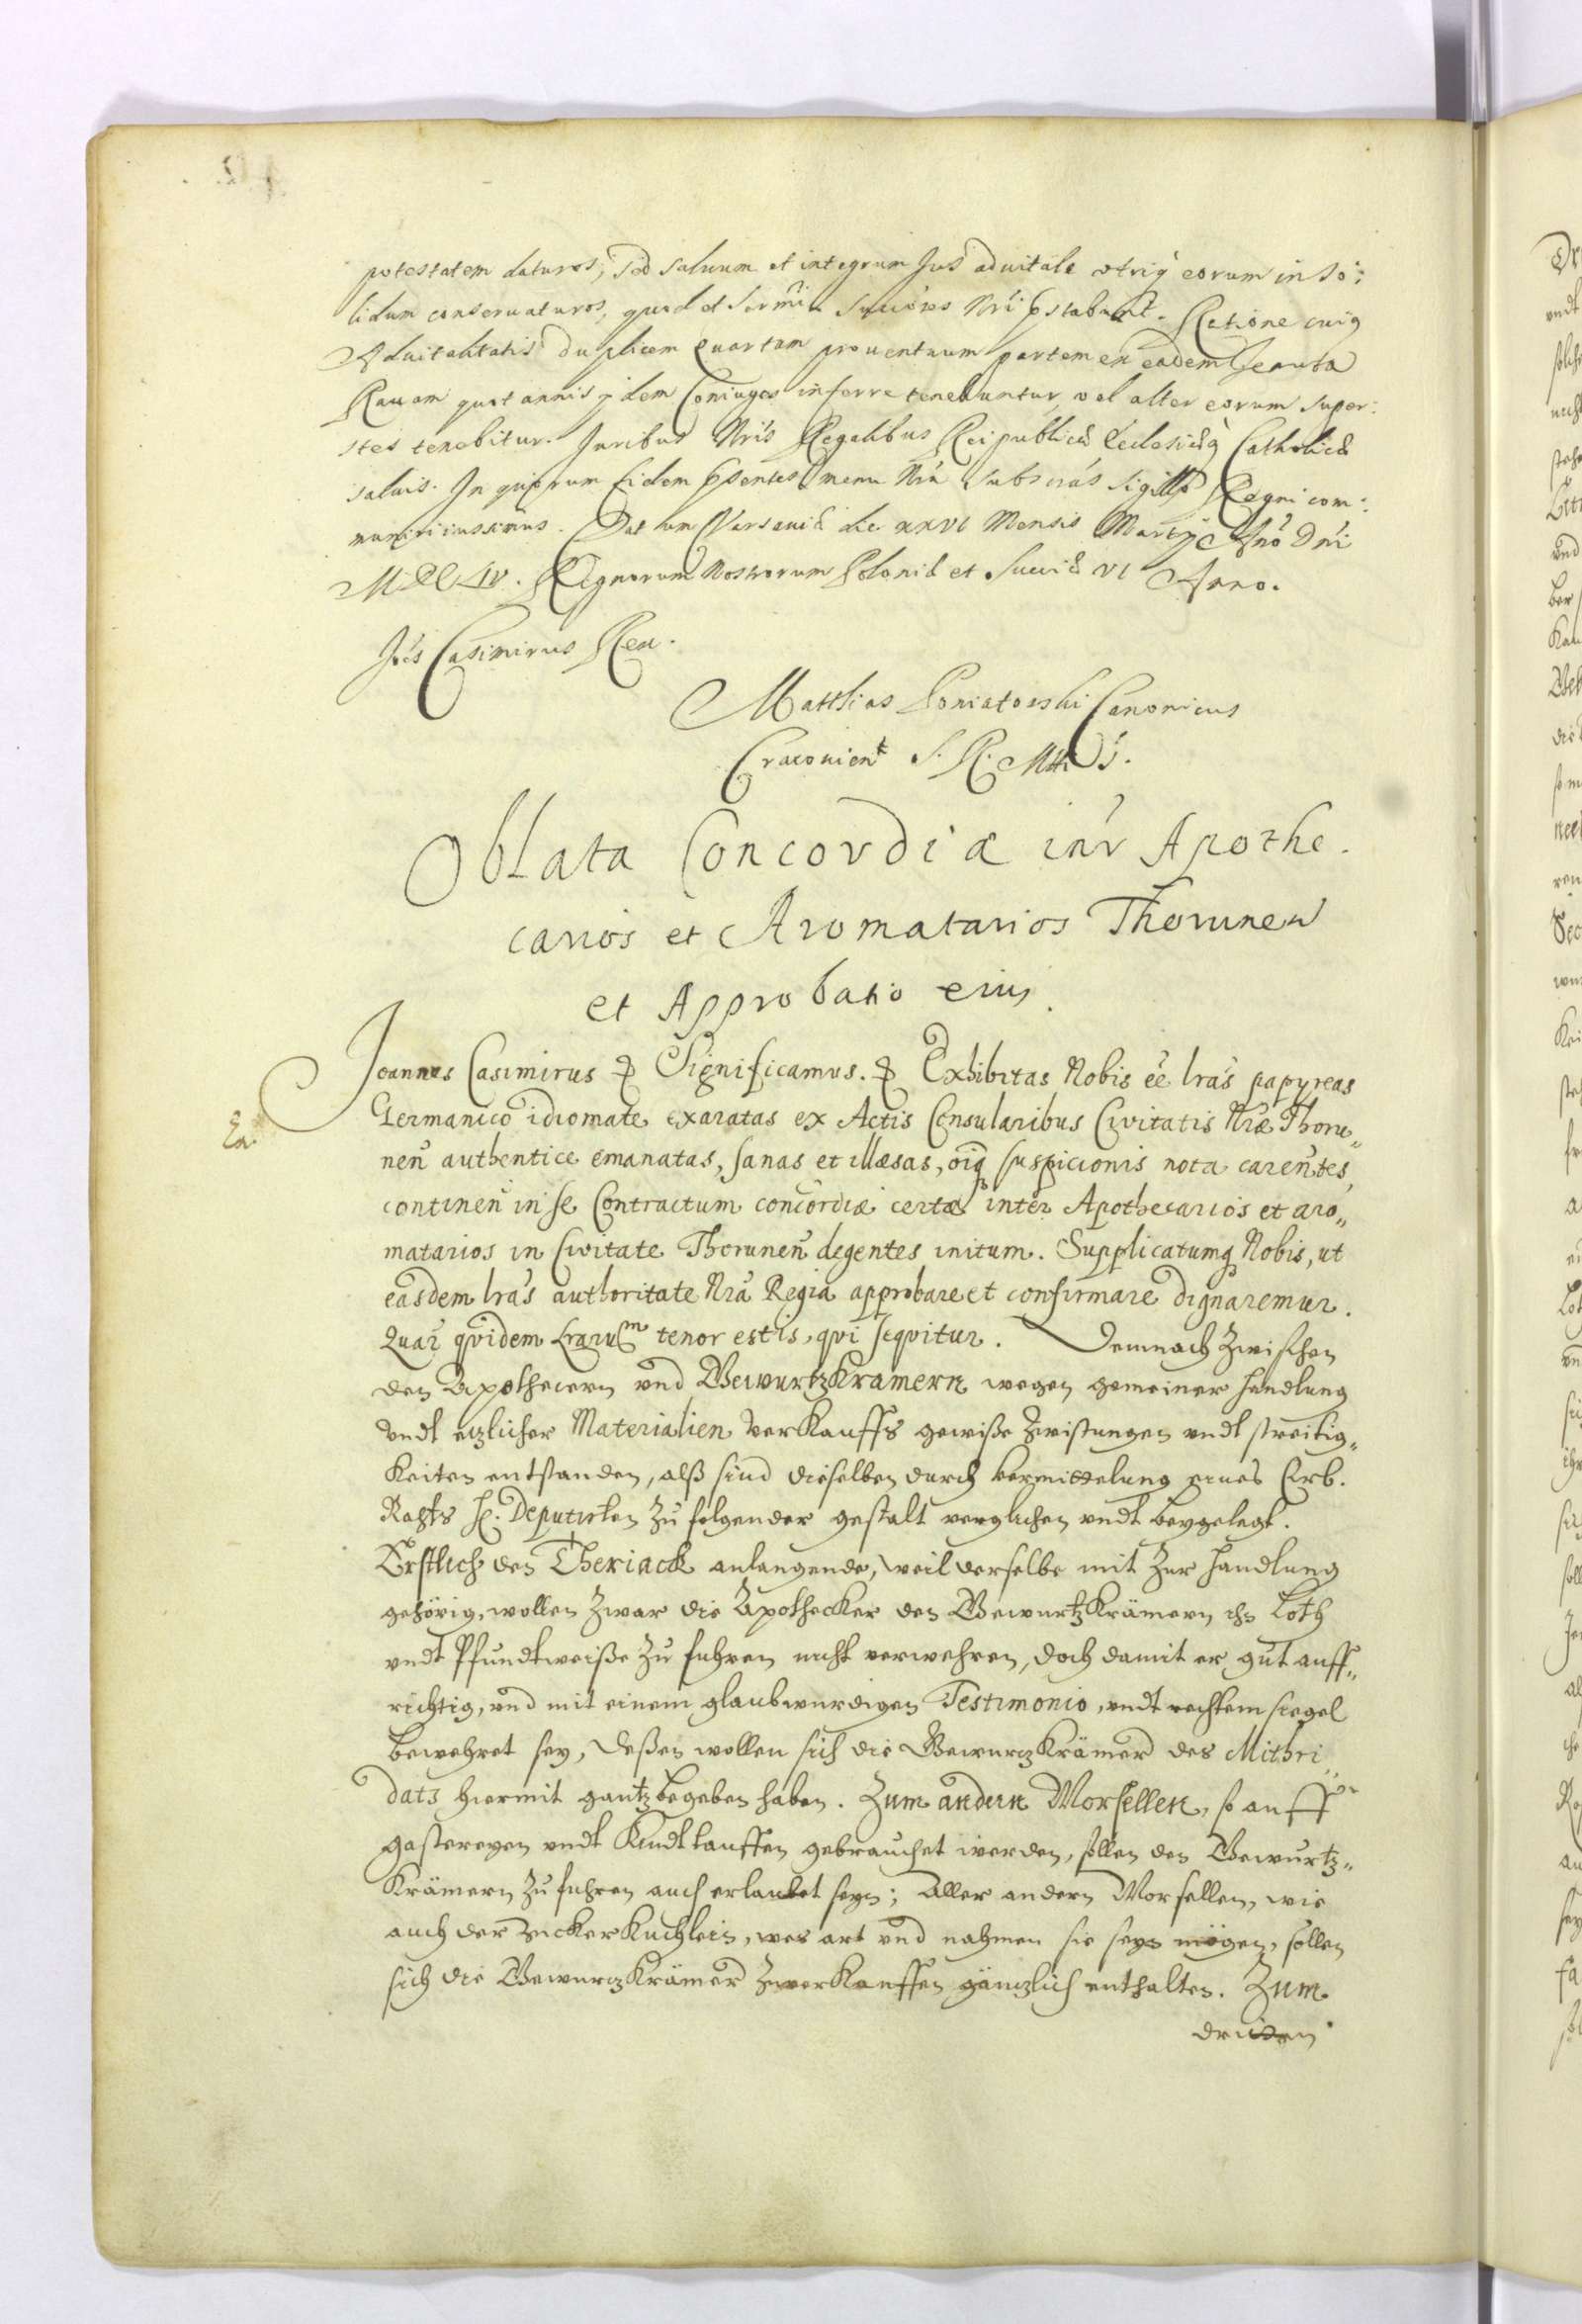 potestatem daturos, sed saluum et integrum Jus aduitale utriq eorum in so:
lidum conseruaturos, quod et Sermi Succores Nri pstabunt. Ratione cuiq
Aduitalitatis duplicem quartam prouentuum partem ex eadem tenuta
Rauam quot annis ijdem Coniuges inferre tenebuntur, vel alter eorum super:
stes tenebitur. Juribus Nris Regalibus Reipublicæ Ecclesiæq Catholicæ
saluis. In quorum fidem psentes manu Nra subscras Sigillo Regni com:
muniri iussimus. Datum Varsauiæ die XXVI Mensis Martij Ano Dni
MDCLIV. Regnorum Nostrorum Poloniæ et Sueciæ VI Anno.
Joes Casimirus Rex.
Matthias Poniatowski Canonicus
Cracouien S. R. Mttis S.
Oblata Concordiæ intr Apothe.
carios et Aromatarios Thorunen
et Approbatio eius.
Joannes Casimirus Significamus. Exhibitas Nobis eë lras papyreas
Germanico idiomate exaratas ex Actis Consularibus Civitatis Nræ Thoru„
nen authentice emanatas, sanas et illæsas, oiq suspicionis nota carentes,
continen in se Contractum concordiæ certæ inter Apothecarios et aro„
matarios in Civitate Thorunen degentes initum. Supplicatumq Nobis, ut
easdem lras authoritate Nra Regia approbare et confirmare dignaremur.
Quar quidem Lrarum tenor est is, qvi seqvitur. Demnach zwischen
den Apothecern vnd Gewurtzkramern wegen gemeiner handlung
vndt etzlicher Materialien verKauffs gewiße Zwistungen vndt streitig„
Keiten entstanden, alß sind dieselben durch vermittelung eines Erb.
Rahts H. Deputirten zu folgender gestalt verglichen vndt beygelegt.
Erstlich den Theriack anlangende, weil derselbe mit zur handlung
gehörig, wollen zwar die Apothecker den GewurtzKrämern ihn Loth
vndt Pfundtweiße zu fuhren nicht verwehren, doch damit er gut auff„
richtig, vnd mit einem glaubwurdigen Testimonio, vndt rechtem siegel
bewehret sey, deßen wollen sich die GewurtzKrämer des Mithri„
dats hiermit gantz begeben haben. Zum andern Morsellen, so auff
gastereyen vndt Kindtauffen gebrauchet werden, sollen den Gewurtz„
Krämern zu fuhren auch erlaubet seyn; Aller andern Morsellen, wie
auch der ZuckerKuchlein, was art vnd nahmen sie seyn mögen, sollen
sich die GewurtzKrämer ZuverKauffen gäntzlich enthalten. Zum
dritten